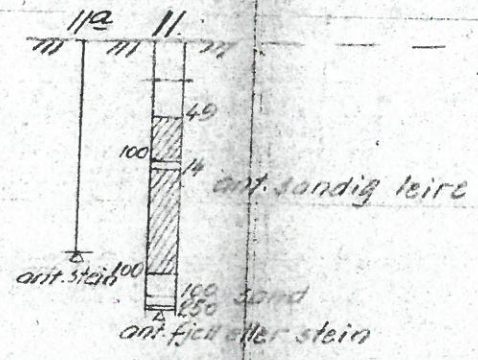 11a 11.
49
100
14
ant. sandig leire
ant. stein 100
100 sand
250
ant. fjell eller stein